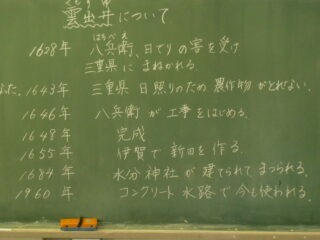 雲出井について
1628年 八兵衛、日でりの害を受け
三重県に まねかれる
った、1643年 三重県 日照りのため 農作物がとれない。
1646年 八兵衛が工事をはじめる。
1648年 完成
1655年 伊賀で新田を作る。
1684年 水分神社が建てられてまつられる。
1960年 コンクリート水路で今も使われる。